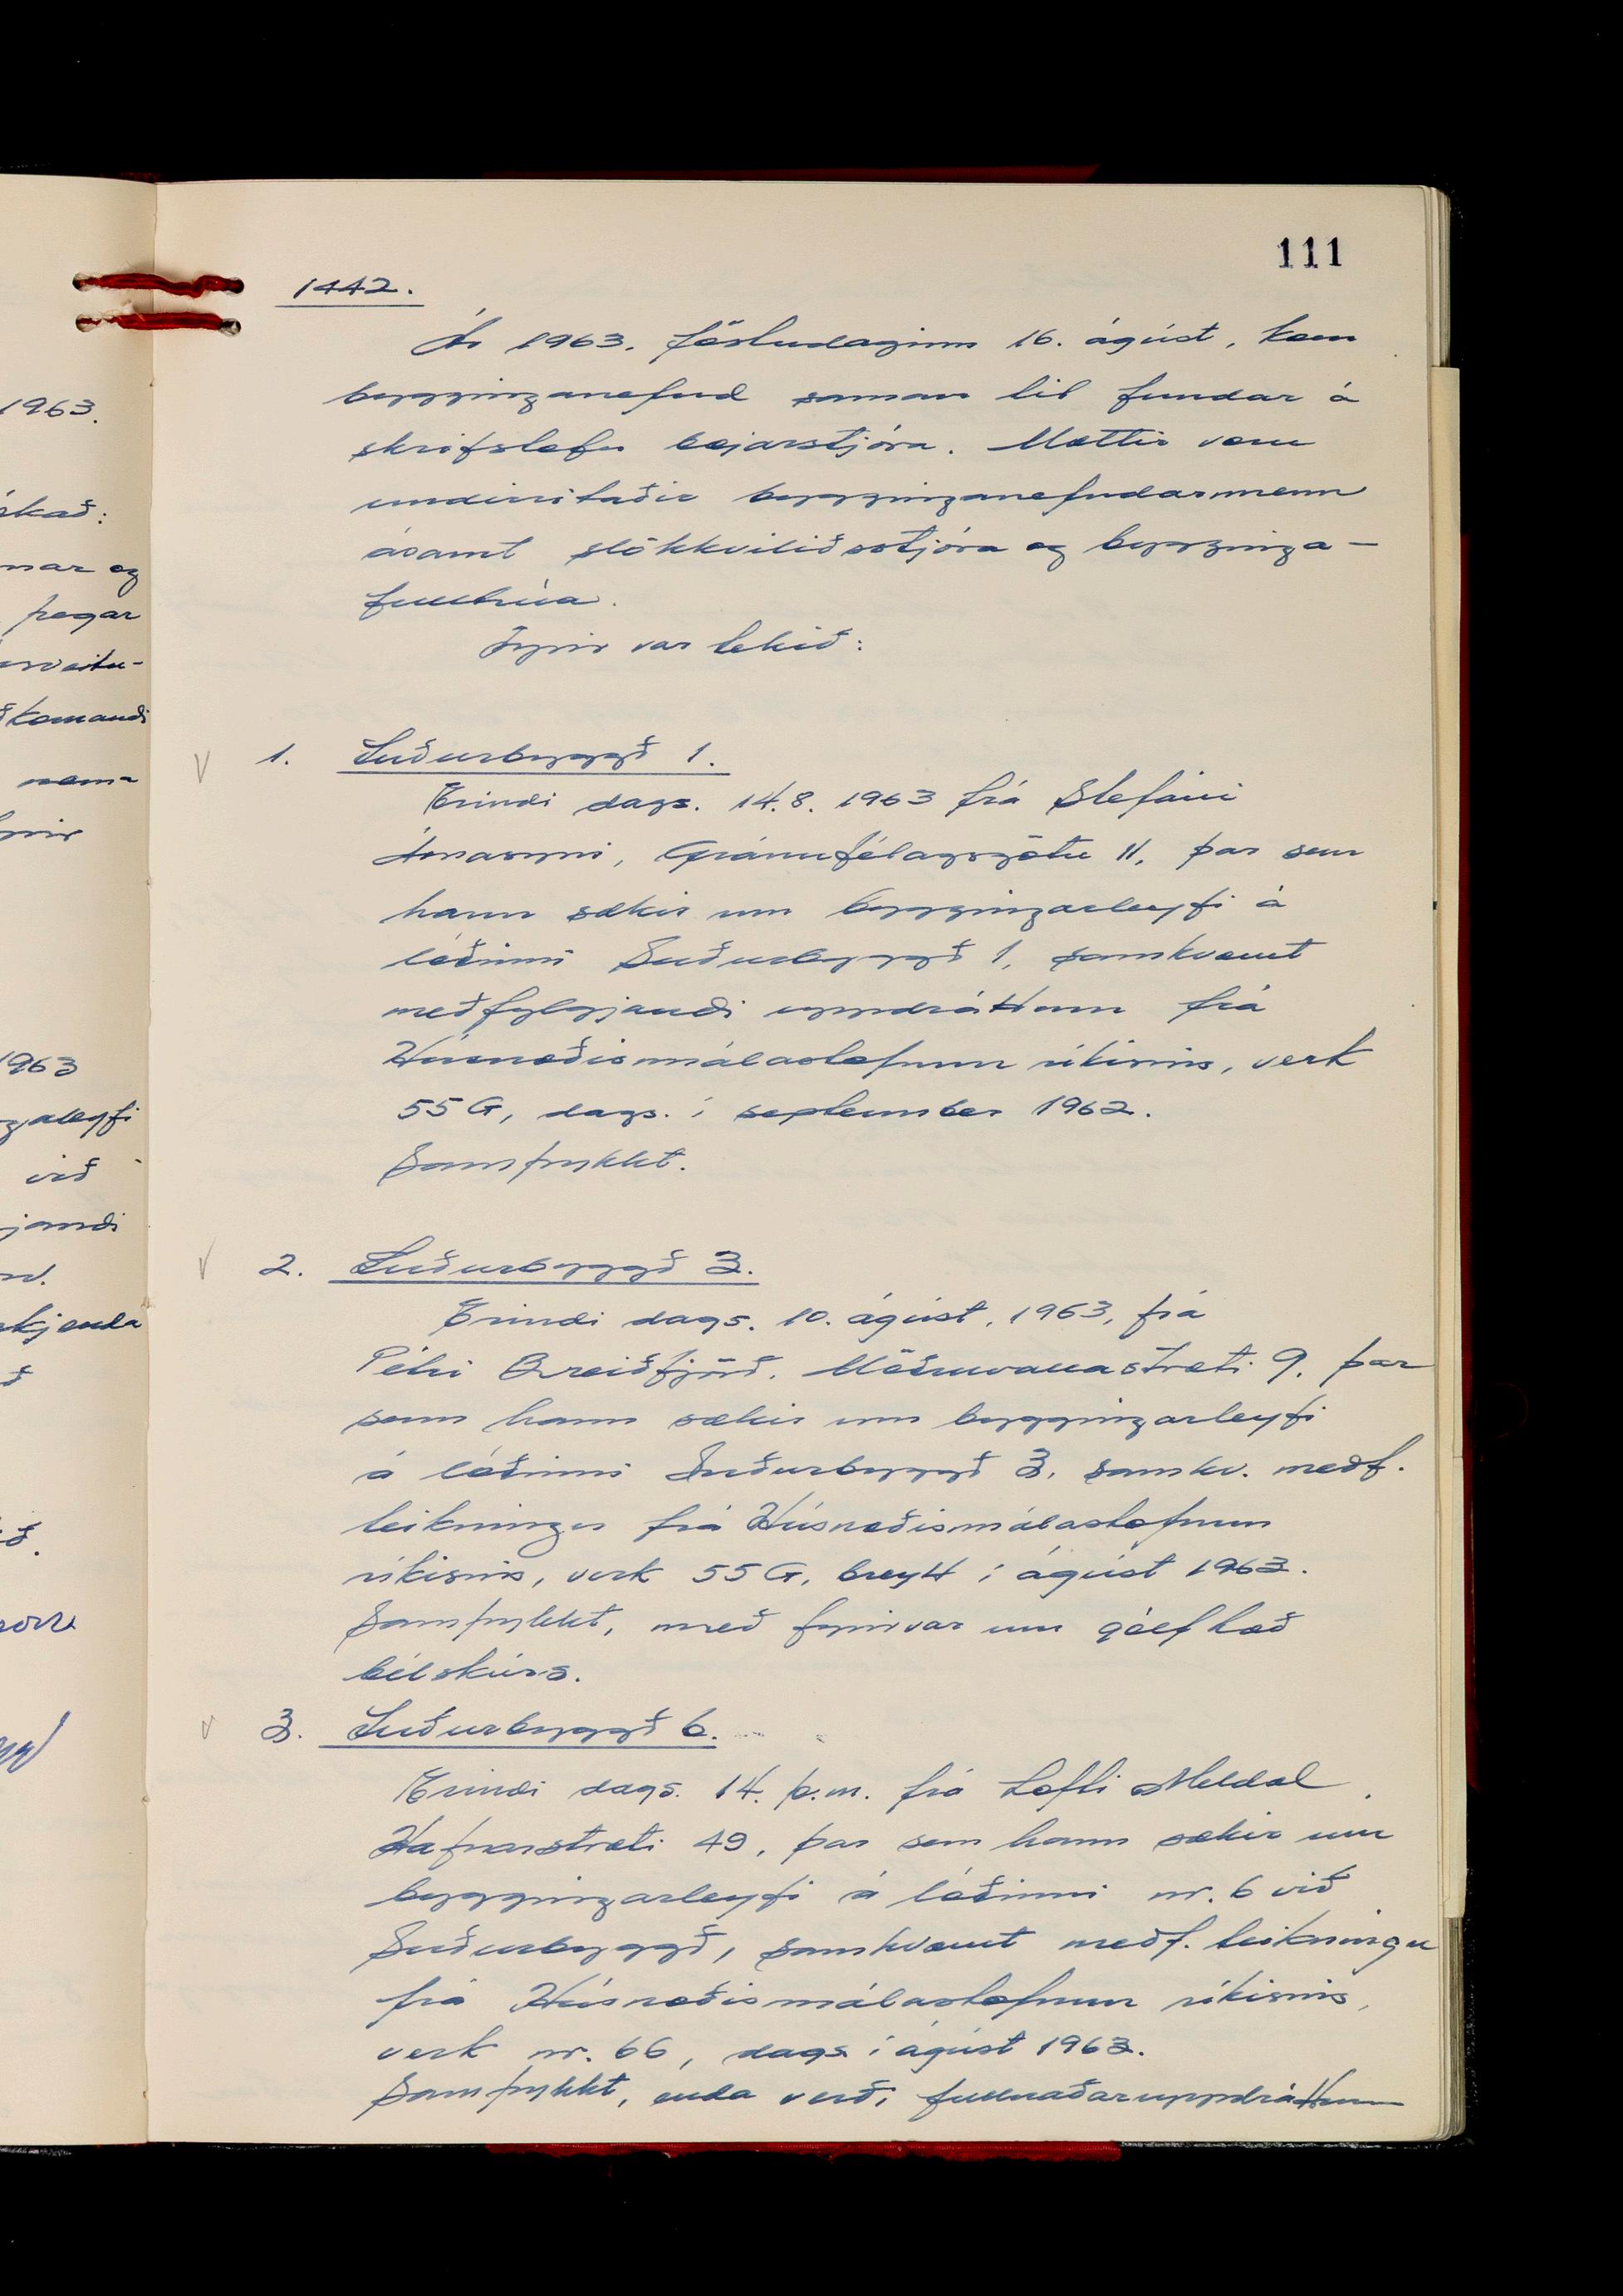 111
1442.
Ár 1963, föstudaginn 16. ágúst, kom
bygginganefnd saman til fundar á
skrifstofu bæjarstjóra. Mættir voru
undirritaðir bygginganefndarmenn
ásamt slökkviliðsstjóra og bygginga-
fulltrúa.
Fyrir var tekið:
1. Suðurbyggð 1.
Erindi dags. 14.8. 1963 frá Stefáni
Árnasyni, Gránufélagsgötu 11, þar sem
hann sækir um byggingarleyfi á
lóðinni Suðurbyggð 1, samkvæmt
meðfylgjandi uppdráttum frá
Húsnæðismálastofnun ríkisins, verk
55 G, dags. í september 1962.
Samþykkt.
2. Suðurbyggð 3.
Erindi dags. 10. ágúst, 1963, frá
Pétri Breiðfjörð, Möðruvallastræti 9, þar
sem hann sækir um byggingarleyfi
á lóðinni Suðurbyggð 3, samkv. meðf.
teikningu frá Húsnæðismálastofnun
ríkisins, verk 55 G, breytt í ágúst 1963.
Samþykkt, með fyrirvar um gólfhæð
bílskúrs.
3. Suðurbyggð 6.
Erindi dags. 14. þ.m. frá Lofti Meldal,
Hafnarstræti 49, þar sem hann sækir um
byggingarleyfi á lóðinni nr. 6 við
Suðurbyggð, samkvæmt meðf. teikningu
frá Húsnæðismálastofnun ríkisins,
verk nr. 66, dags í ágúst 1963.
Samþykkt, enda verði fullnaðaruppdráttum
1963.
skað:
nar og
þegar
komandi
1963
galeyfi
við
jandi